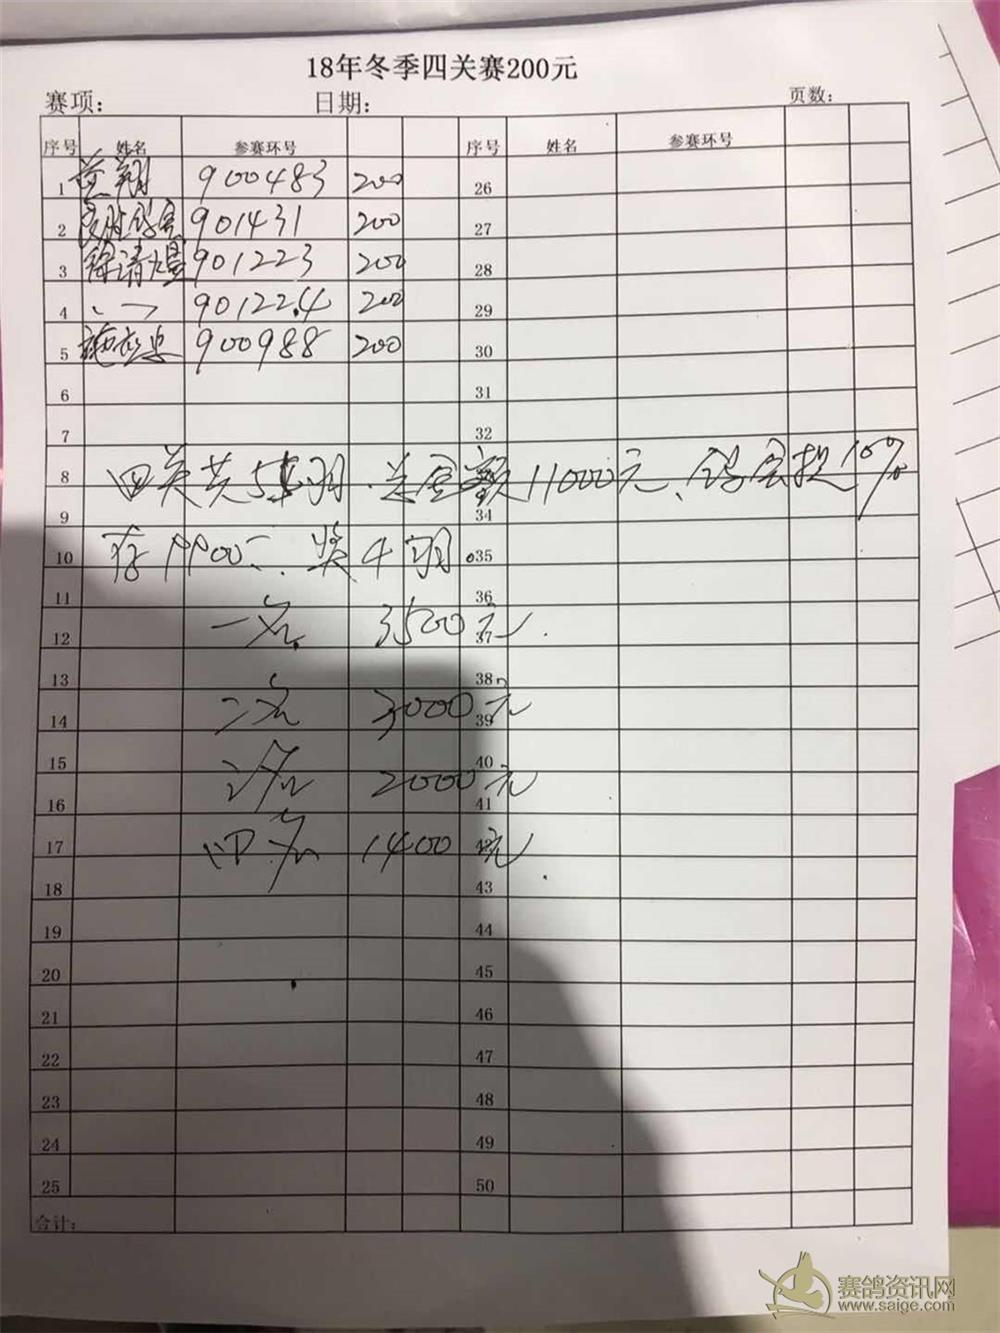 18年冬季四关赛200元
赛项： 日期： 页数：
序号 姓名 参赛环号 序号 姓名 参赛环号
1 翔 900483 200 26
2 901431 200 27
3 徐清 901223 200 28
4 901224 200 29
5 施 900988 200 30
6 31
7 32
8 四关共55羽、总金额11000元、鸽会提10%
9 34
10 存9900元、奖4羽。 35
11 36
12 一名 3500元. 37
13 38
14 二名 3000元 39
15 40
16 三名 2000元 41
17 四名 1400元.
18 43
19 44
20 45
21 46
22 47
23 48
24 49
25 50
合计：
赛鸽资讯网
www.saige.com